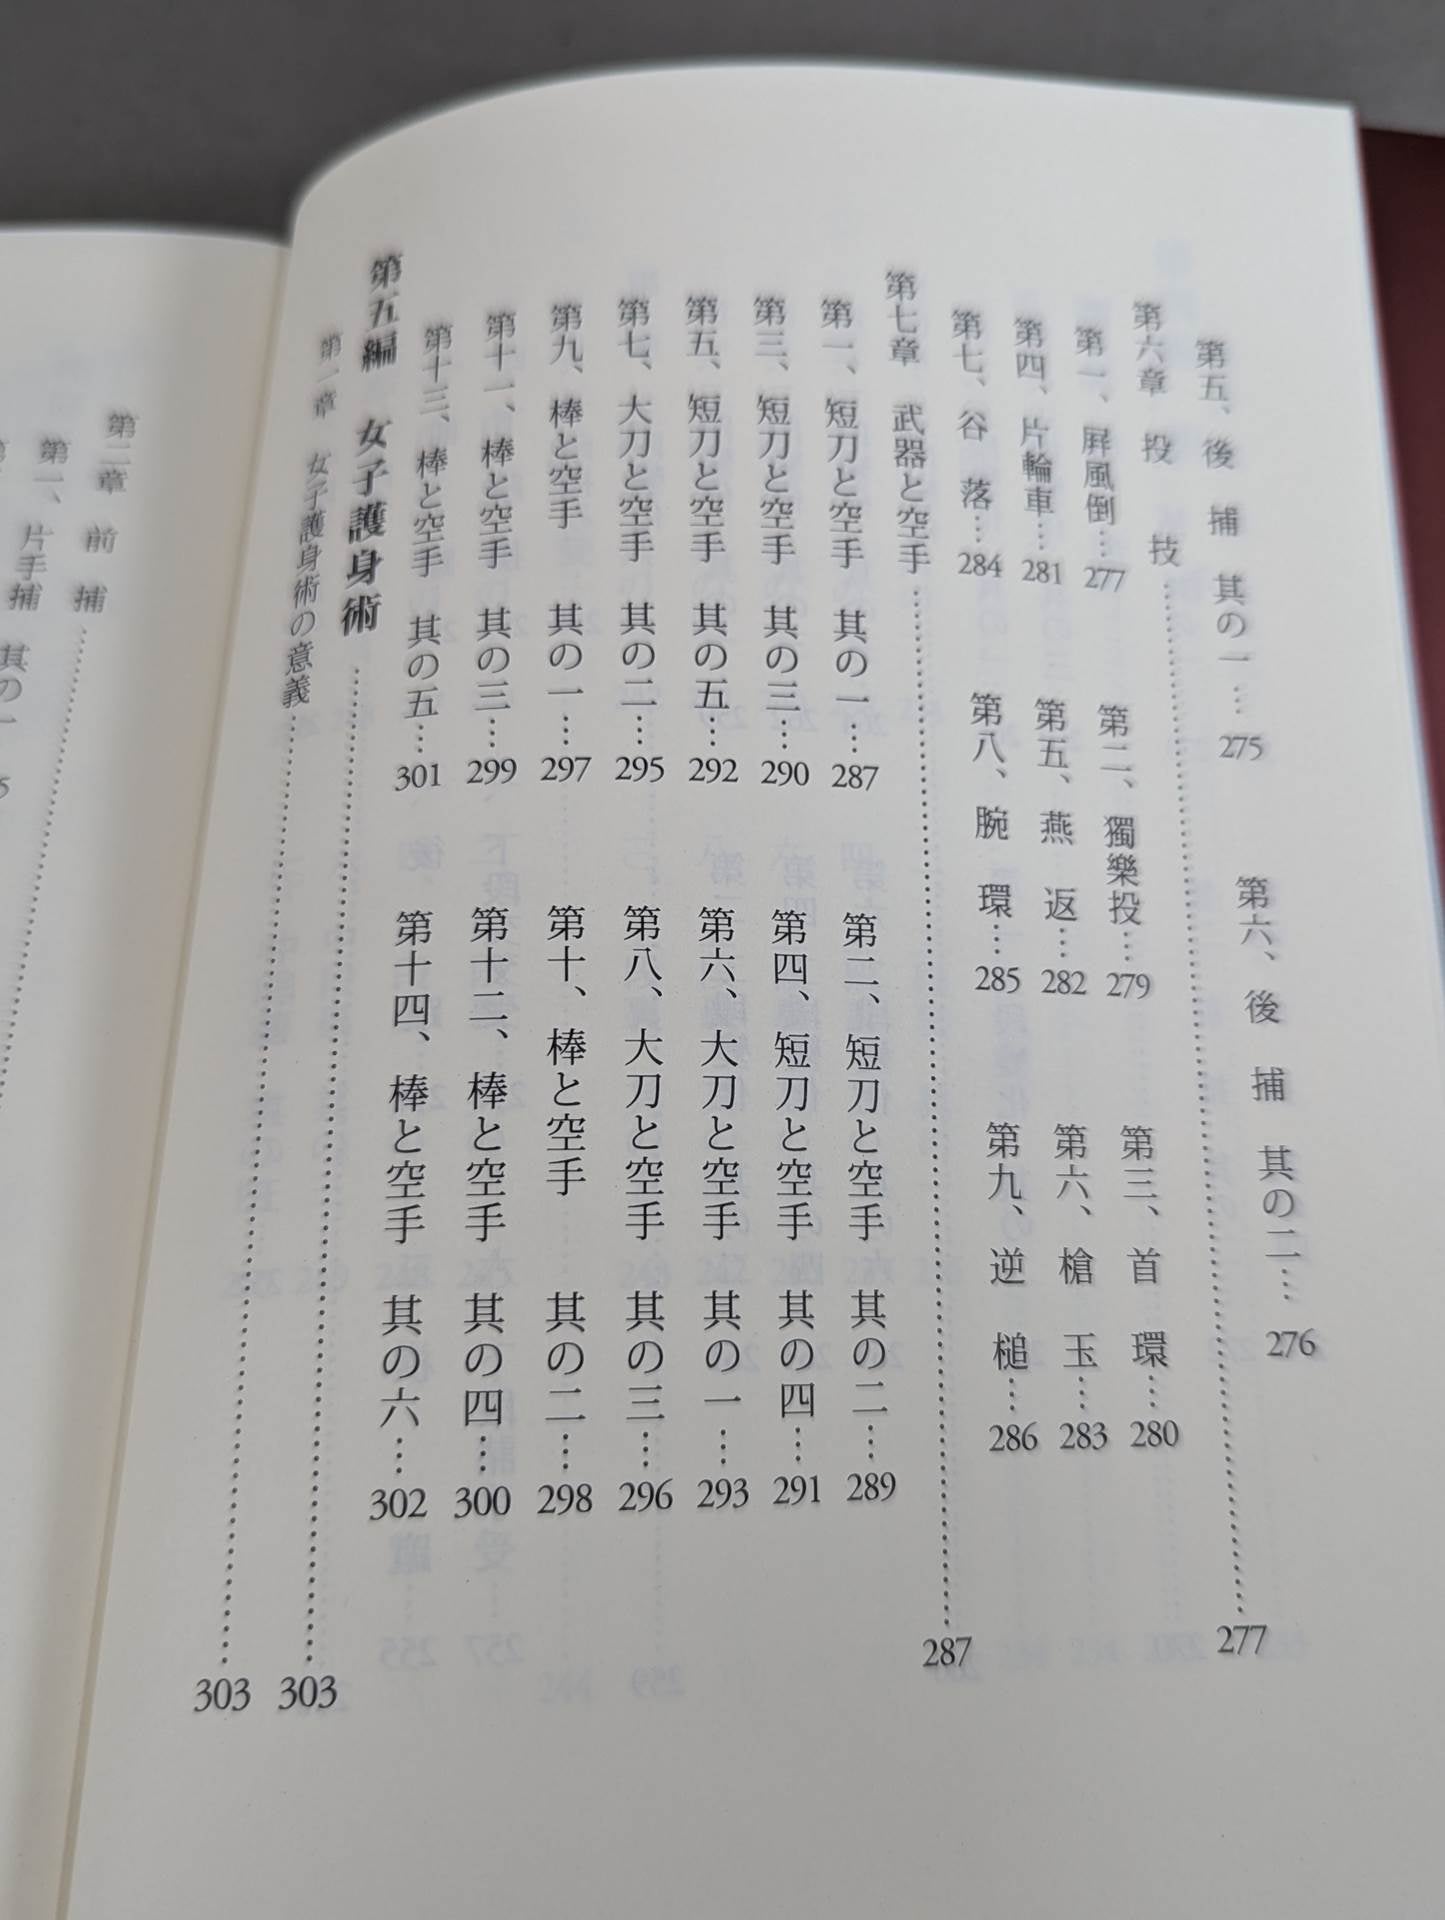 第五、後捕 其の一…275 第六、後捕 其の二…276
第六章 投技……277
第一、屛風倒…277 第二、獨樂投…279 第三、首環…280
第四、片輪車…281 第五、燕返…282 第六、槍玉…283
第七、谷落…284 第八、腕環…285 第九、逆槌…286
第七章 武器と空手……287
第一、短刀と空手 其の一…287 第二、短刀と空手 其の二…289
第三、短刀と空手 其の三…290 第四、短刀と空手 其の四…291
第五、短刀と空手 其の五…292 第六、大刀と空手 其の一…293
第七、大刀と空手 其の二…295 第八、大刀と空手 其の三…296
第九、棒と空手 其の一…297 第十、棒と空手 其の二…298
第十一、棒と空手 其の三…299 第十二、棒と空手 其の四…300
第十三、棒と空手 其の五…301 第十四、棒と空手 其の六…302
第五編 女子護身術……303
第一章 女子護身術の意義……303
第二章 前捕……
第一、片手捕 其の一